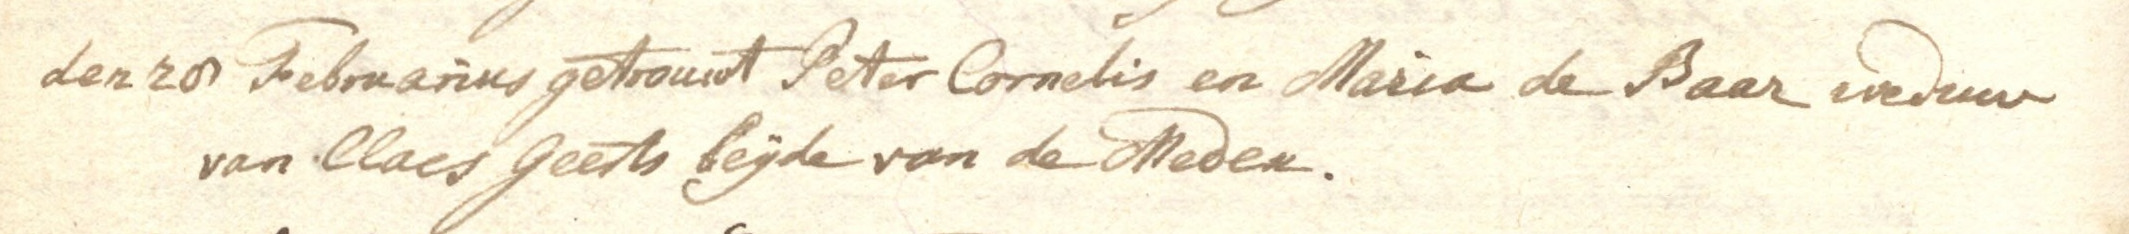 den 28 Februarius getrouwt Peter Cornelis en Maria de Baar weduw
van Claes Geerts beÿde van de Meden.